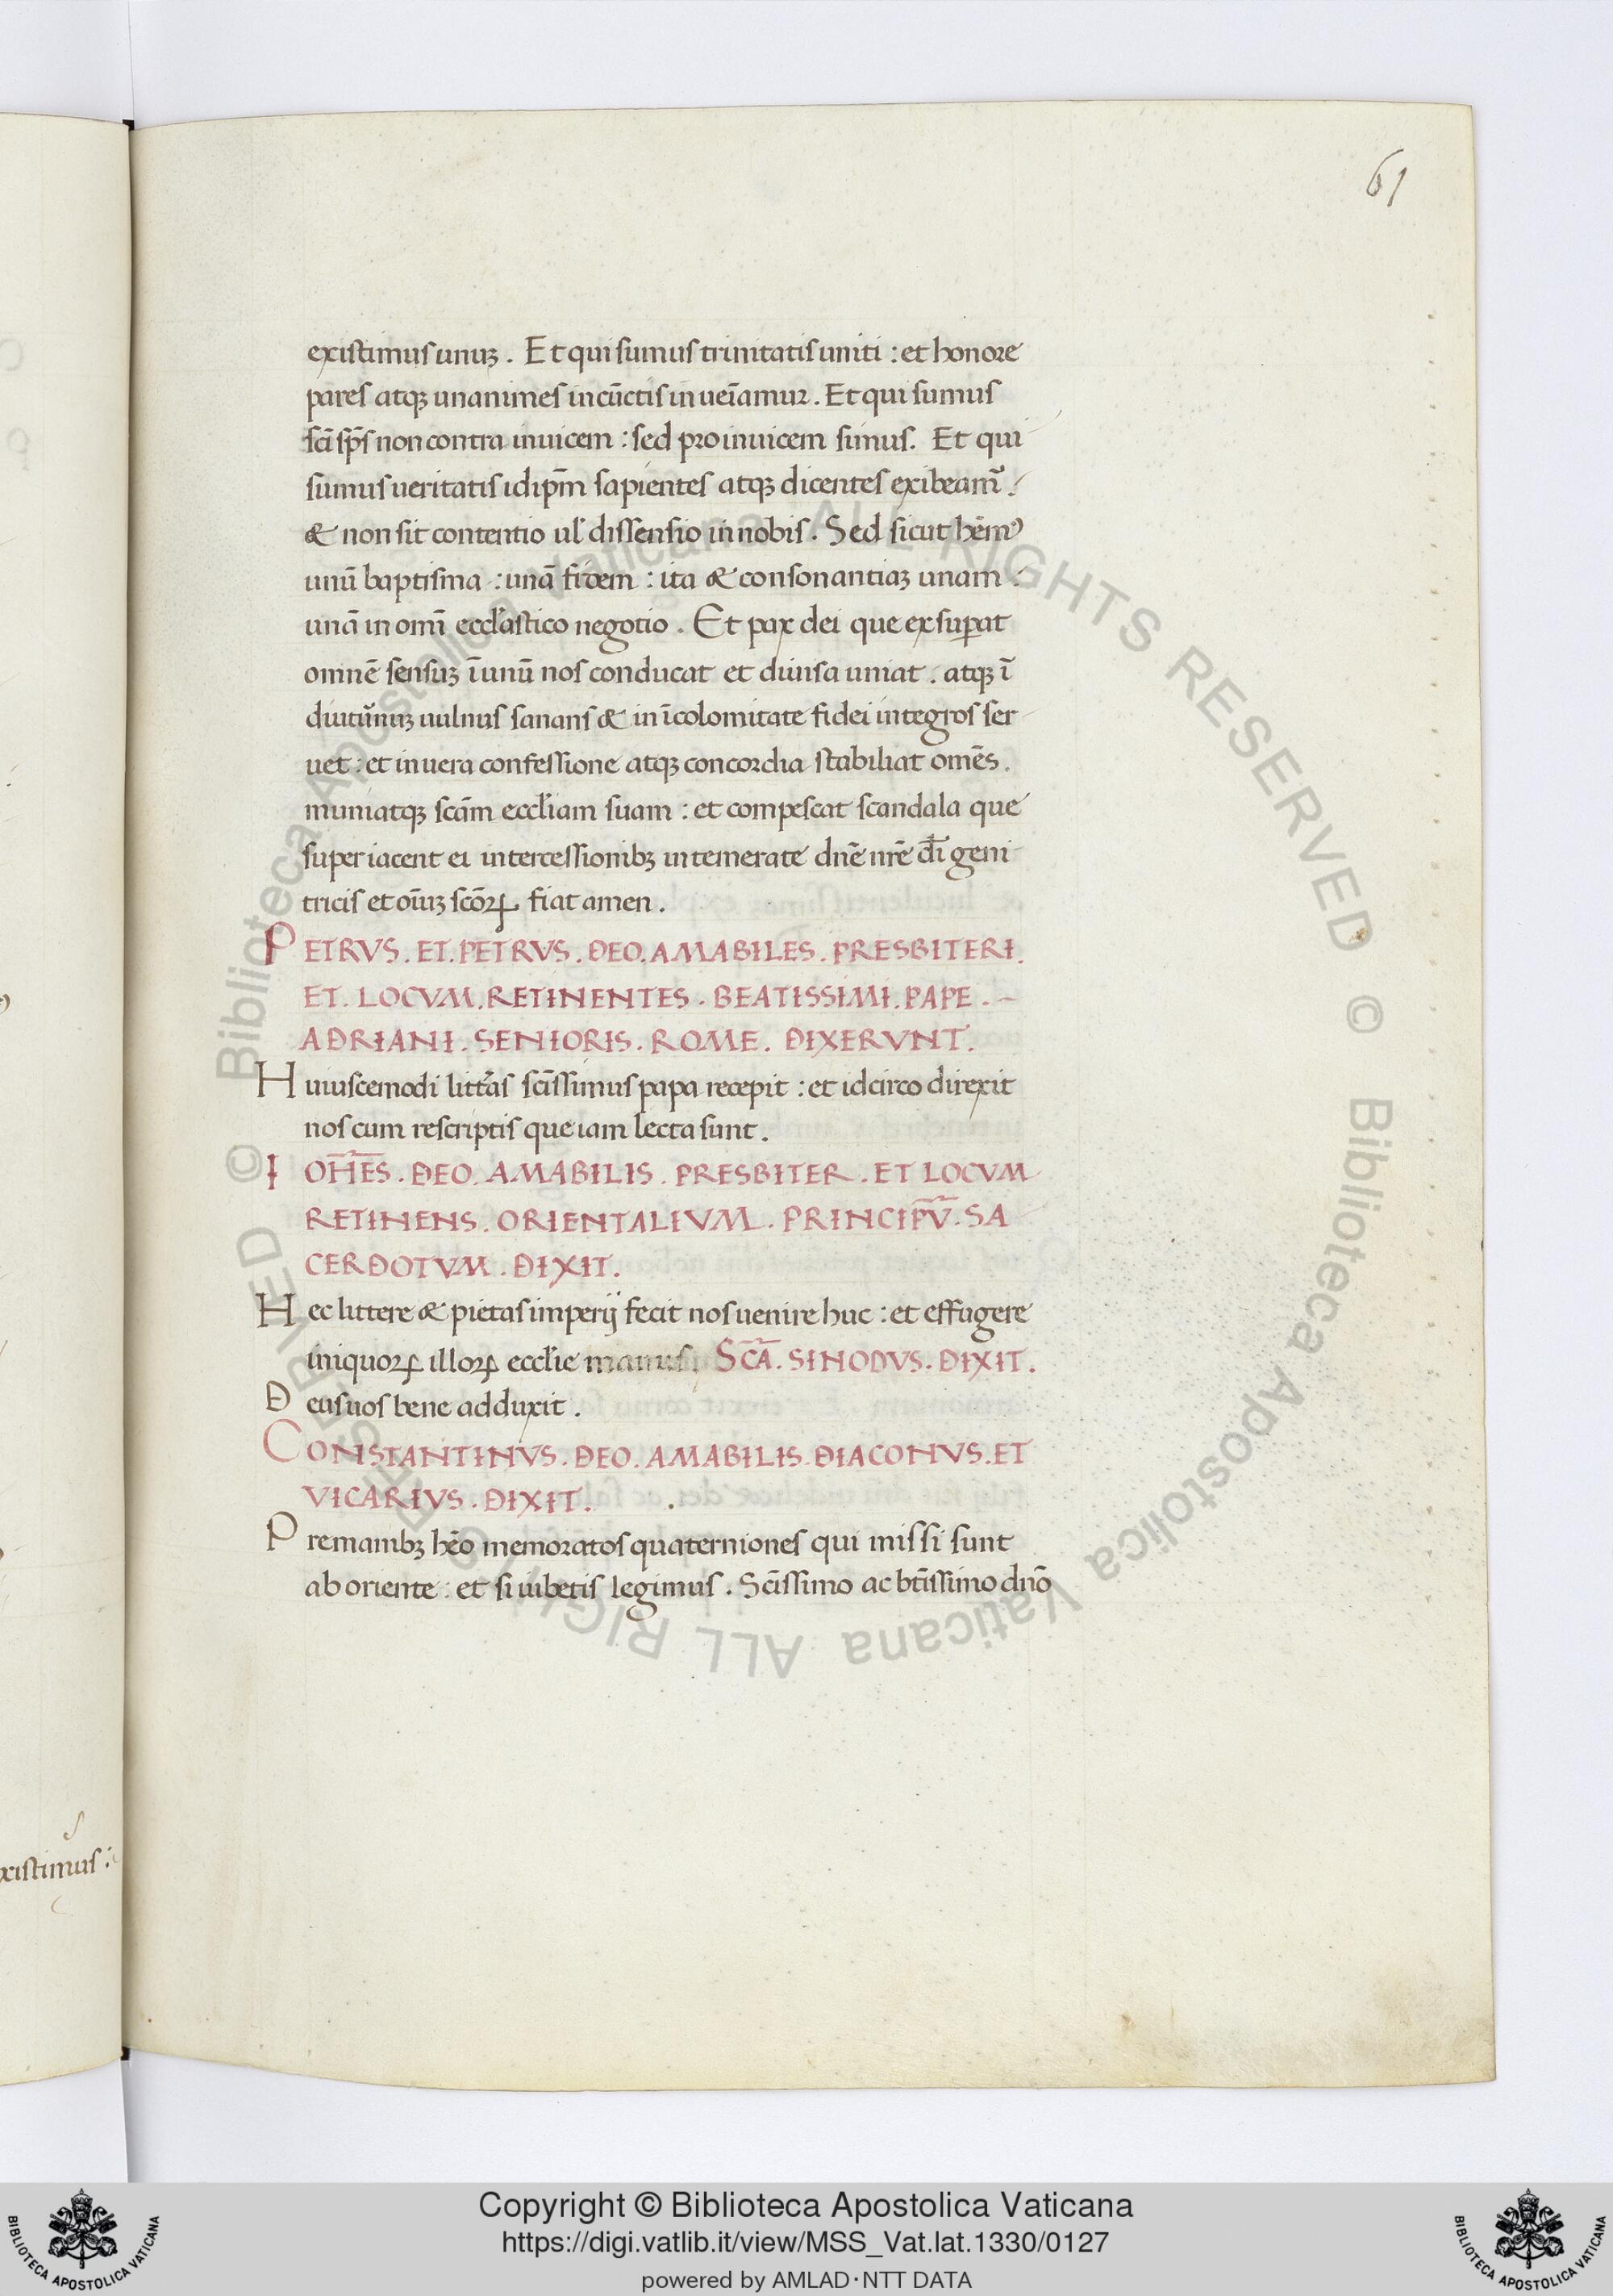 61
existimus unuꝫ. Et qui sumus trinitatis uniti : et honore
pares atqꝫ unanimes in cūctis inueīamur. Et qui sumus
sc̄i sp̄s non contra inuicem : sed pro inuicem simus. Et qui
sumus ueritatis idip̄m sapientes atqꝫ dicentes exibeam᷑.
& non sit contentio ul' dissensio in nobis. Sed sicut hēmꝰ
unū baptisma : unā fidem : ita & consonantiaꝫ unam :
unā in omī eccl'astico negotio. Et pax dei que exsuꝑat
omnē sensuꝫ ī unū nos conducat et diuisa uniat. atqꝫ ī
diuturnuꝫ uulnus sanans & in īcolomitate fidei integros ser
uet : et in uera confessione atqꝫ concordia stabiliat omēs.
muniatqꝫ scām eccl'iam suam : et compescat scandala que
superiacent ei intercessionibꝫ intemerate dn̄e nr̄e dī geni
tricis et oīuꝫ scōꝝ fiat amen.
PETRVS. ET. PETRVS. DEO. AMABILES. PRESBITERI.
ET. LOCVM. RETINENTES. BEATISSIMI. PAPE. -
ADRIANI. SENIORIS. ROME. DIXERVNT.
Huiuscemodi litt̄as sc̄issimus papa recepit : et idcirco direxit
nos cum rescriptis que iam lecta sunt.
IOH̄ES. DEO. AMABILIS. PRESBITER. ET LOCVM
RETINENS. ORIENTALIVM. PRINCIPV̄. SA
CERDOTVM. DIXIT.
Hec littere & pietas imperij fecit nos uenire huc : et effugere
iniquoꝝ illoꝝ eccl'ie manus. SC̄A. SINODVS. DIXIT.
Deus uos bene adduxit.
CONSTANTINVS. DEO. AMABILIS. DIACONVS. ET
VICARIVS. DIXIT.
Pre manibꝫ hēo memoratos quaterniones qui missi sunt
ab oriente : et si iubetis legimus. Sc̄issimo ac bt̄issimo dn̄o
xistimus :
© Biblioteca Apostolica Vaticana ALL RIGHTS RESERVED © Biblioteca Apostolica Vaticana ALL RIGHTS RESERVED
Copyright © Biblioteca Apostolica Vaticana
https://digi.vatlib.it/view/MSS_Vat.lat.1330/0127
powered by AMLAD·NTT DATA
BIBLIOTECA APOSTOLICA VATICANA
BIBLIOTECA APOSTOLICA VATICANA